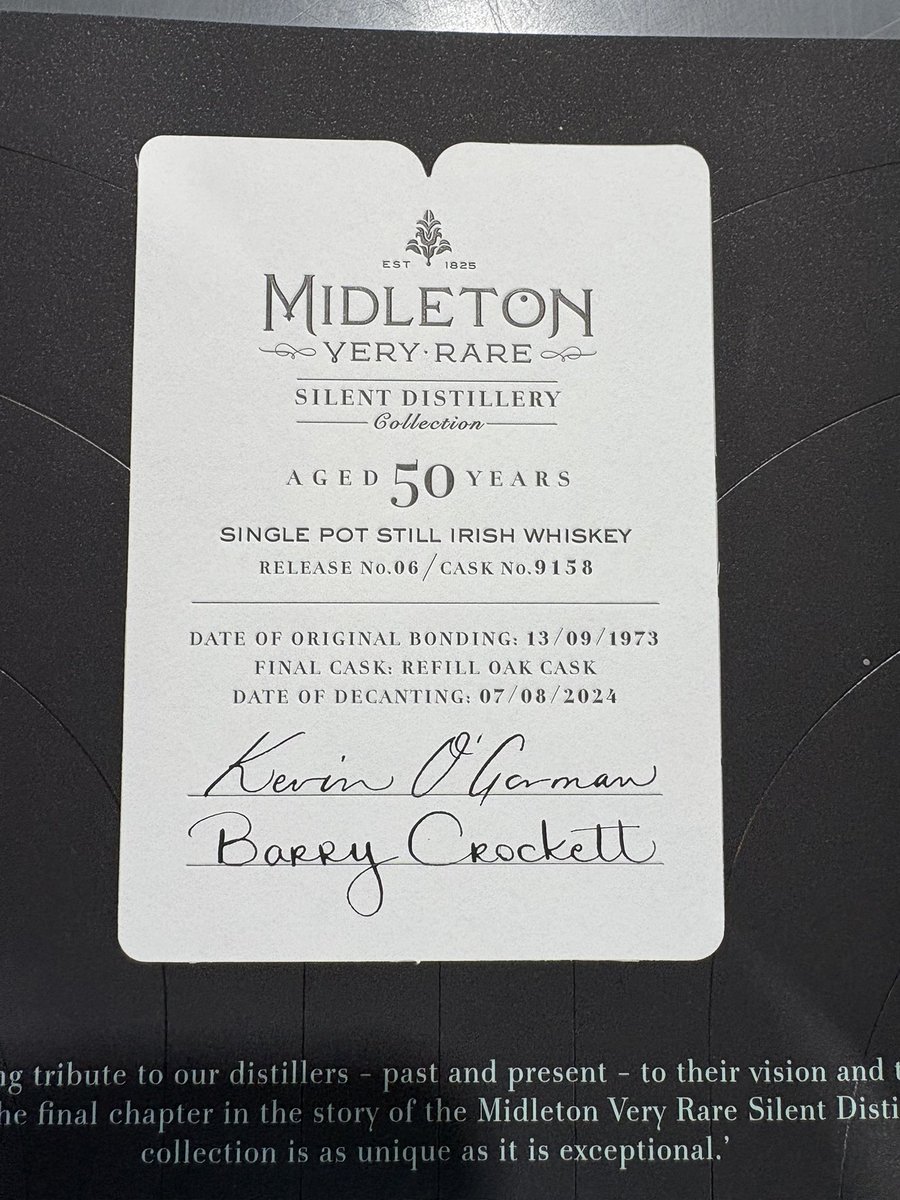 EST 1825
MIDLETON
VERY·RARE
SILENT DISTILLERY
Collection
AGED 50 YEARS
SINGLE POT STILL IRISH WHISKEY
RELEASE No.06/CASK No.9158
DATE OF ORIGINAL BONDING: 13/09/1973
FINAL CASK: REFILL OAK CASK
DATE OF DECANTING: 07/08/2024
Kevin O'Gorman
Barry Crockett
tribute to our distillers – past and present – to their vision and
final chapter in the story of the Midleton Very Rare Silent
collection is as unique as it is exceptional.’